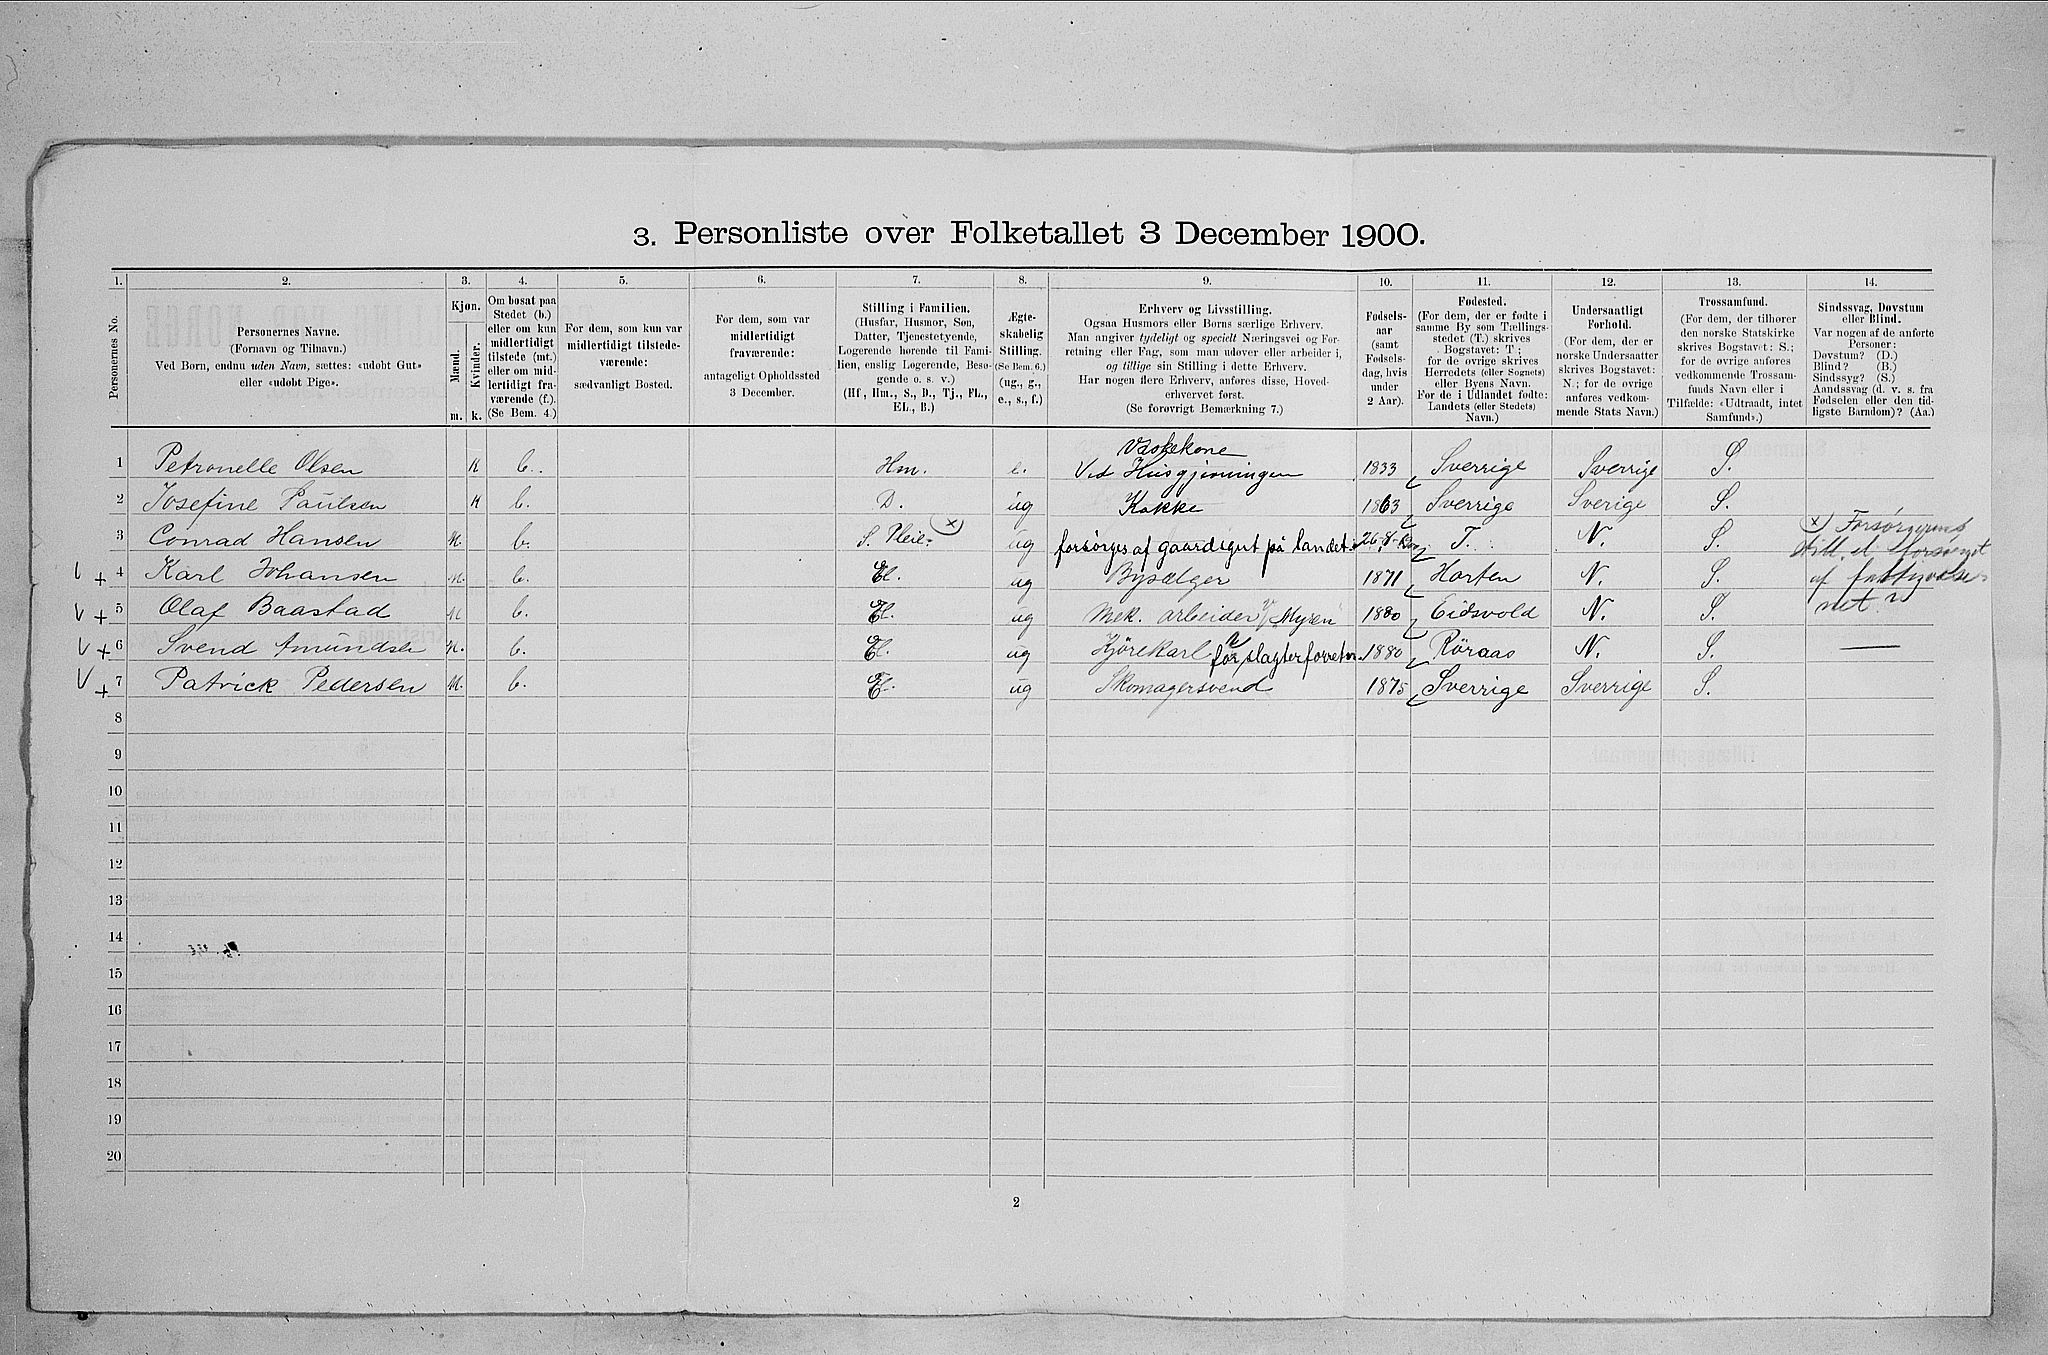 3. Personliste over Folketallet 3 December 1900.
1. 2. 3. 4. 5. 6. 7. 8. 9. 10. 11. 12. 13. 14.
Personernes No.
Personernes Navne.
(Fornavn og Tilnavn.)
Ved Børn, endnu uden Navn, sættes: «udøbt Gut»
eller «udøbt Pige».
Kjøn.
Mænd. Kvinder.
m. k.
Om bosat paa
Stedet (b.)
eller om kun
midlertidigt
tilstede (mt.)
eller om mid-
lertidigt fra-
værende (f.).
(Se Bem. 4.)
For dem, som kun var
midlertidigt tilstede-
værende:
sædvanligt Bosted.
For dem, som var
midlertidigt
fraværende:
antageligt Opholdssted
3 December.
Stilling i Familien.
(Husfar, Husmor, Søn,
Datter, Tjenestetyende,
Logerende hørende til Fami-
lien, enslig Logerende, Besø-
gende o. s. v.)
(Hf, Hm., S., D., Tj., FL.,
EL., B.)
Ægte-
skabelig
Stilling.
(Se Bem. 6.)
(ug., g.,
e., s., f.)
Erhverv og Livsstilling.
Ogsaa Husmors eller Børns særlige Erhverv.
Man angiver tydeligt og specielt Næringsvei og For-
retning eller Fag, som man udøver eller arbeider i,
og tillige sin Stilling i dette Erhverv.
Har nogen flere Erhverv, anføres disse, Hoved-
erhvervet først.
(Se forøvrigt Bemærkning 7.)
Fødsels-
aar
(samt
Fødsels-
dag, hvis
under
2 Aar).
Fødested.
(For dem, der er fødte i
samme By som Tællings-
stedet (T.) skrives
Bogstavet: T;
for de øvrige skrives
Herredets (eller Sognets)
eller Byens Navn.
For de i Udlandet fødte:
Landets (eller Stedets)
Navn.)
Undersaatligt
Forhold.
(For dem, der er
norske Undersaatter
skrives Bogstavet:
N.; for de øvrige
anføres vedkom-
mende Stats Navn.)
Trossamfund.
(For dem, der tilhører
den norske Statskirke
skrives Bogstavet: S.;
for de øvrige anføres
vedkommende Trossam-
funds Navn eller i
Tilfælde: «Udtraadt, intet
Samfund».)
Sindssvag, Døvstum
eller Blind.
Var nogen af de anførte
Personer:
Døvstum? (D.)
Blind? (B.)
Sindssyg? (S.)
Aandssvag (d. v. s. fra
Fødselen eller den tid-
ligste Barndom)? (Aa.)
Vaskekone
1 Petronelle Olsen K b. Hm. e. Ved Husgjerningen 1833 Sverrige Sverrige S.
2 Josefine Paulsen K b. D. ug Kokke 1863 Sverrige Sverige S.
3 Conrad Hansen M. b. S. Pleie. (x) ug forsørges af gaardsgut på landet 26-8- T. N. S. (x) Forsørgerens
still. el. forsørget
V + 4 Karl Johansen M. b. El. ug Bysælger 1871 Horten N. S. af fattigvæse-
V + 5 Olaf Baastad M b. El. ug Mek. arbeider Myren 1880 Eidsvold N. S. net?
V + 6 Svend Amundsen M. b. El. ug Kjørekarl for slagterforretn. 1880 Röraas N. S.
V + 7 Patrick Pedersen M. b. El. ug Skomagersvend 1875 Sverrige Sverrige S.
8
9
10
11
12
13
14
15
16
17
18
19
20
2